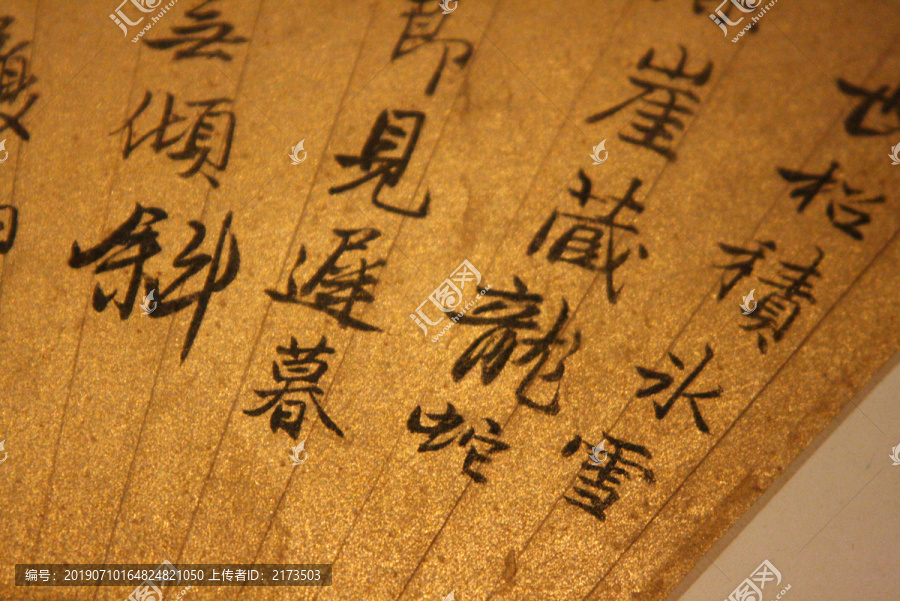 松積冰雪
崖藏龍蛇
即見遲暮
無傾斜
汇图网
www.huitu.com
编号：20190710164824821050 上传者ID：2173503